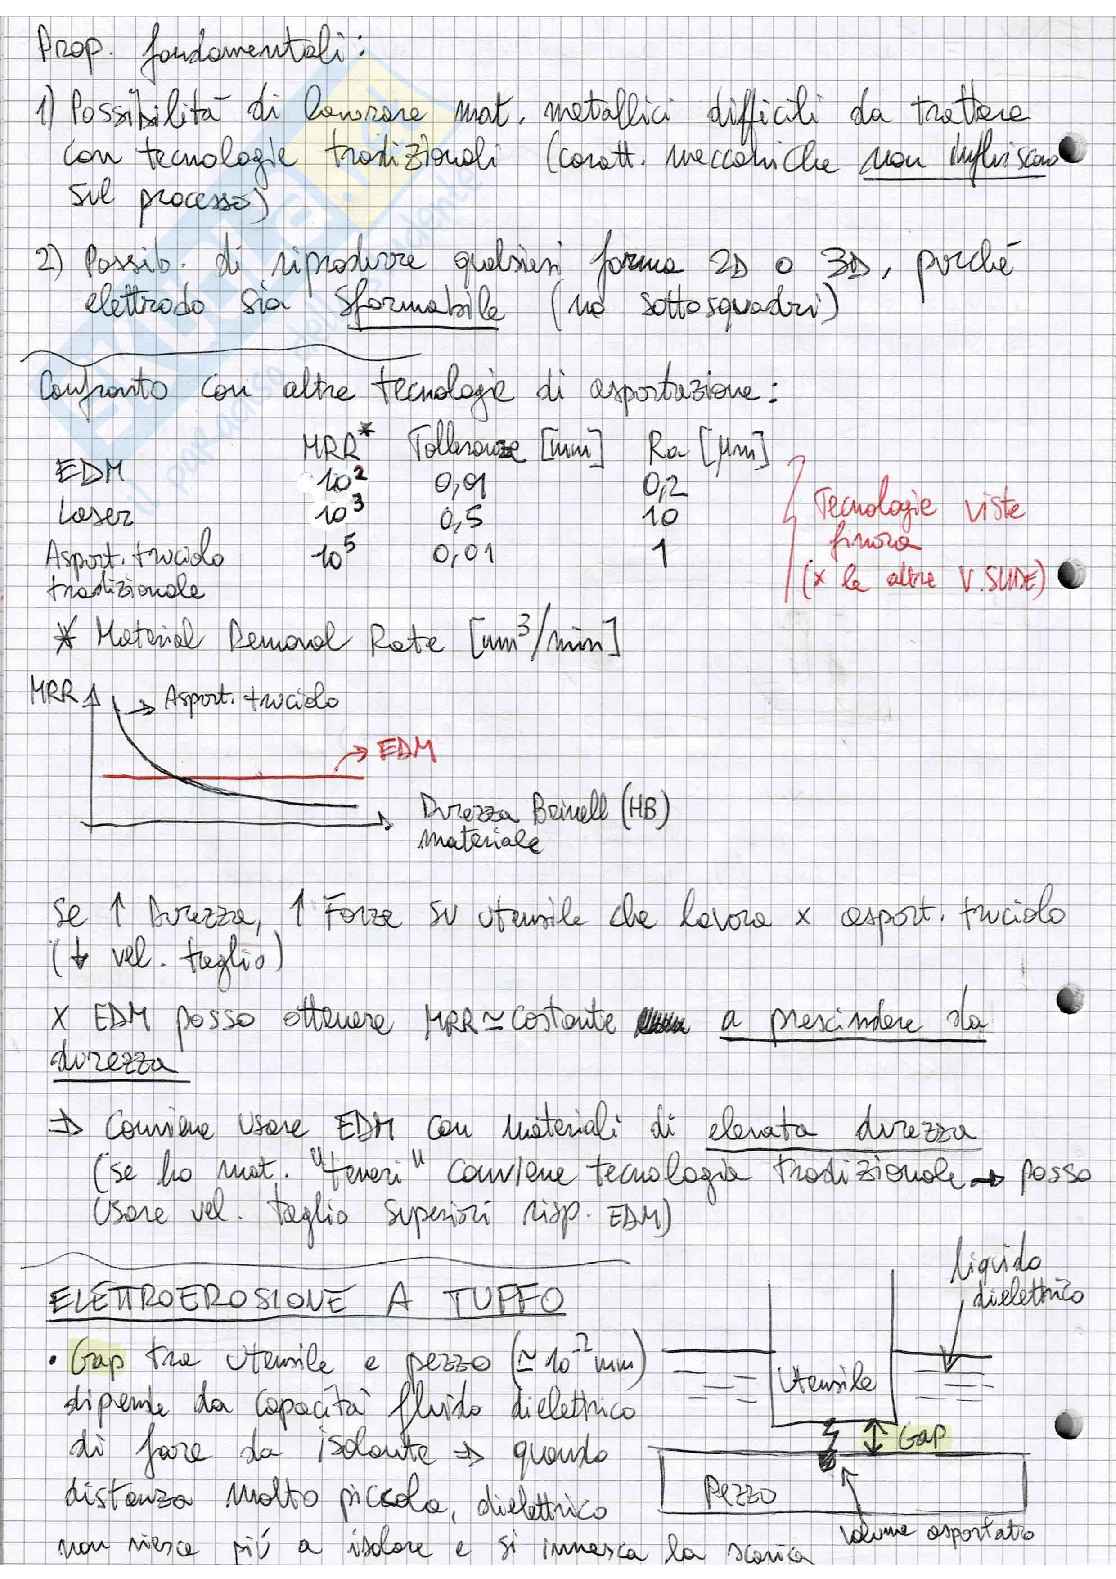 Prop. fondamentali:
1) Possibilità di lavorare mat. metallici difficili da trattare
con tecnologie tradizionali (caratt. meccaniche non influiscono
sul processo)
2) Possib. di riprodurre qualsiasi forma 2D o 3D, purché
elettrodo sia sformabile (no sottosquadri)
Confronto con altre tecnologie di asportazione:
MRR* Tolleranze [mm] Ra [μm]
EDM 10² 0,01 0,2
Laser 10³ 0,5 10
Asport. truciolo 10⁵ 0,01 1
tradizionale
Tecnologie viste
finora
(x le altre V. SLIDE)
* Material Removal Rate [mm³/min]
MRR
Asport. truciolo
EDM
Durezza Brinell (HB)
materiale
Se ↑ Durezza, ↑ Forze su utensile che lavora x asport. truciolo
(↓ vel. taglio)
X EDM posso ottenere MRR ≃ costante a prescindere da
durezza
⇒ Conviene usare EDM con materiali di elevata durezza
(se ho mat. "teneri" conviene tecnologia tradizionale → posso
usare vel. taglio superiori risp. EDM)
ELETTROEROSIONE A TUFFO
• Gap tra utensile e pezzo (≃ 10⁻² mm)
dipende da capacità fluido dielettrico
di fare da isolante ⇒ quando
distanza molto piccola, dielettrico
non riesce più a isolare e si innesca la scarica
liquido
dielettrico
Utensile
Gap
Pezzo
volume asportato